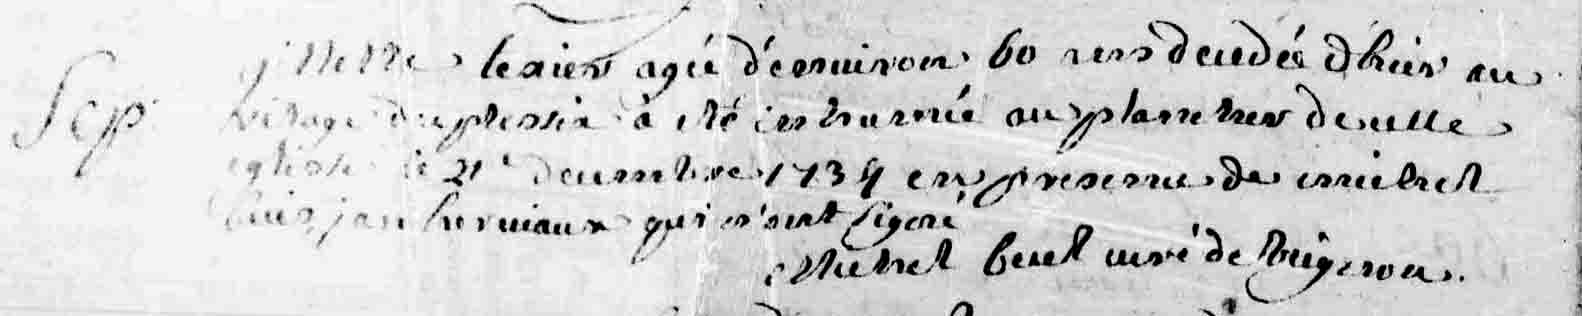 gillette texier agée d'environ 60 ans decedée d'hier au
Sep. vilage du plessix a été inhumée au placistre de cette
eglise le 21e decembre 1734 en presence de michel
jan herviaux qui n'ont signé
Michel beuel curé de treigneron.